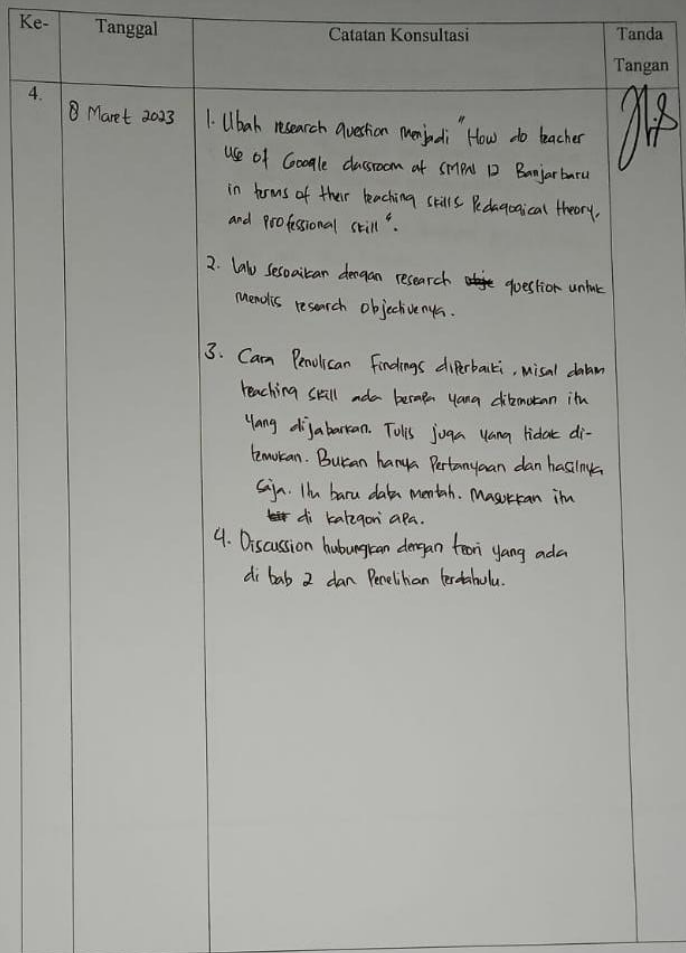 Ke-
Tanggal
Catatan Konsultasi
Tanda
Tangan
4.
8 Maret 2023
1. Ubah research question menjadi "How do teacher
use of Google classroom at SMPN 12 Banjarbaru
in terms of their teaching skills Pedagogical theory,
and professional skill".
2. Lalu sesoaikan dengan research question untuk
menulis research objectivenya.
3. Cara Penulisan Findings diperbaiki, misal dalam
teaching skill ada berapa yang ditemukan itu
yang dijabarkan. Tulis juga yang tidak di-
temukan. Bukan hanya Pertanyaan dan hasilnya
saja. Itu baru data mentah. Masukkan itu
di kategori apa.
4. Discussion hubungkan dengan teori yang ada
di bab 2 dan Penelitian terdahulu.